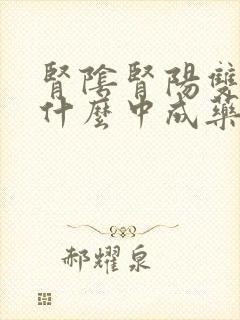 腎陰腎陽雙
什麼中成藥
郝耀泉